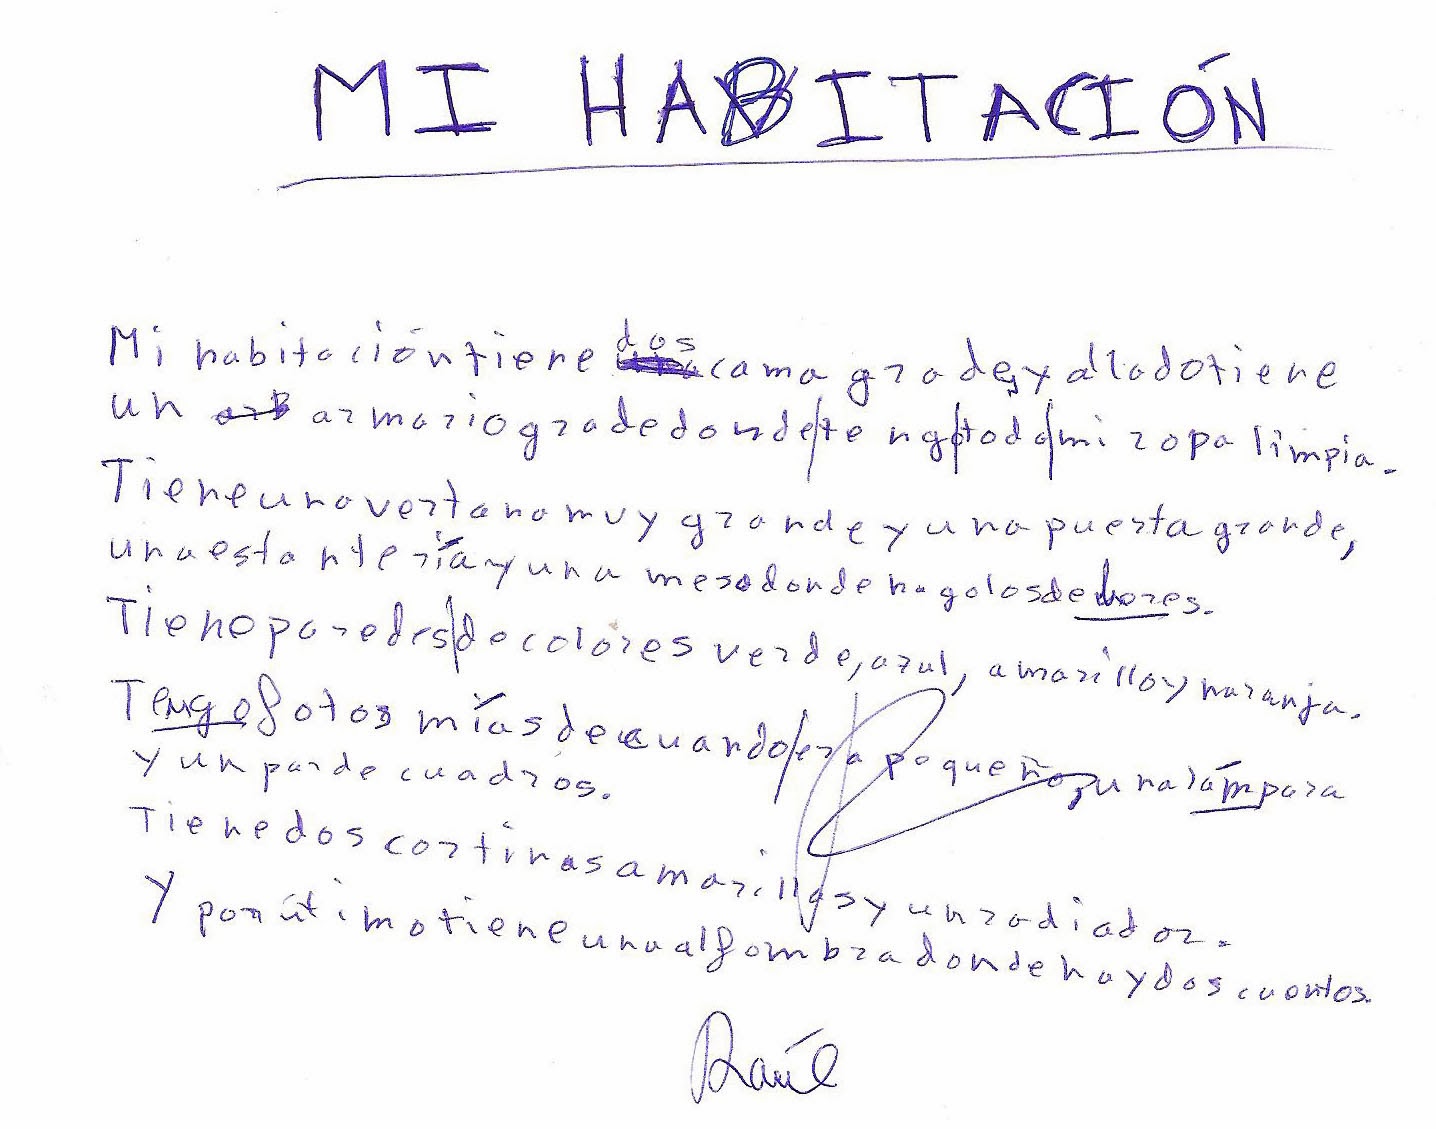 MI HABITACIÓN
Mi habitación tiene dos cama grades y al lado tiene
un armario grade donde tengo toda mi ropa limpia.
Tiene una vertana muy grande y una puerta grande,
una estantería y una mesa donde hago los deberes.
Tiene paredes de colores verde, azul, amarillo y naranja.
Tengo fotos mías de cuando era pequeño, una lámpara
y un par de cuadros.
Tiene dos cortinas amarillas y un radiador.
Y por útimo tiene una alfombra donde hay dos cuentos.
Raúl